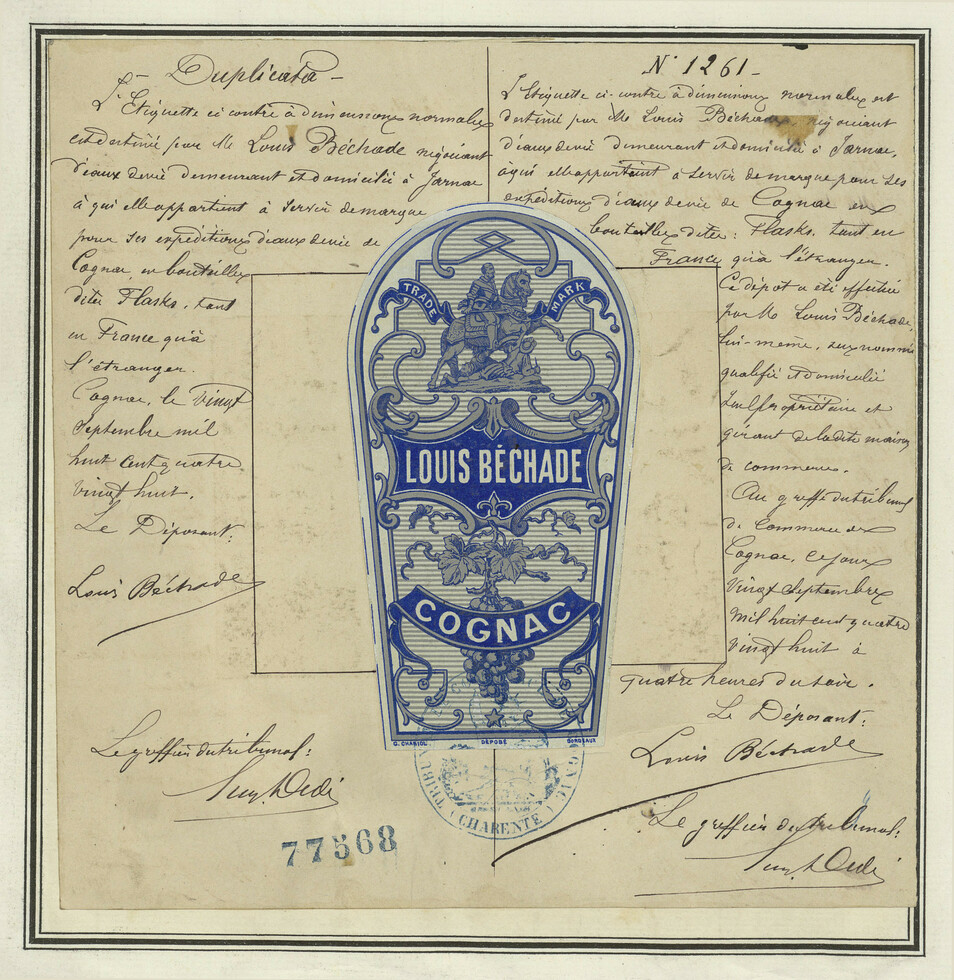 Duplicata
L'Etiquette ci contre à dimensions normales
est destiné par Mr Louis Béchade négociant
d'eaux de vie demeurant et domicilié à Jarnac
à qui elle appartient à servir de marque
pour ses expéditions d'eaux de vie de
Cognac, en bouteilles
dites Flasks, tant
en France qu'à
l'étranger.
Cognac, le vingt
Septembre mil
huit cent quatre
vingt huit.
Le Déposant:
Louis Béchade
Le greffier du tribunal:
77568
N° 1261
L'Etiquette ci-contre à dimensions normales est
destiné par Mr Louis Béchade, négociant
d'eaux de vie demeurant et domicilié à Jarnac,
à qui elle appartient à servir de marque pour ses
expéditions d'eaux de vie de Cognac en
bouteilles dites: Flasks, tant en
France qu'à l'étranger.
Ce dépôt a été effectué
par Mr Louis Béchade,
lui-même, susnommé
qualifié et domicilié
seul propriétaire et
gérant de la dite maison
de commerce.
Au greffe du tribunal
de Commerce de
Cognac, ce jour
vingt Septembre
mil huit cent quatre
vingt huit à
quatre heures du soir.
Le Déposant:
Louis Béchade
Le greffier du tribunal:
TRADE MARK
LOUIS BÉCHADE
COGNAC
G. CHARIOL DÉPOSÉ BORDEAUX
CHARENTE